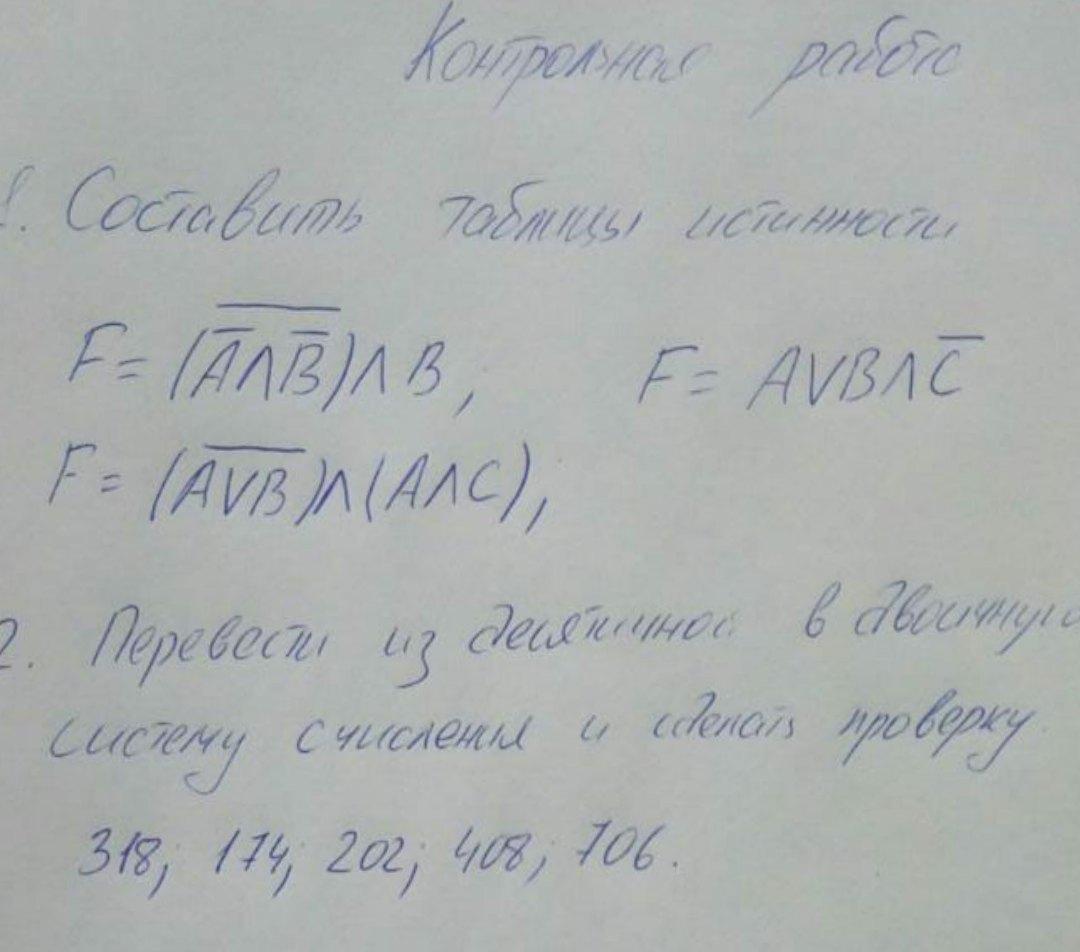 Контрольная работа
1. Составить таблицы истинности
F = (\overline{\overline{A}∧\overline{B}})∧B, F = A∨B∧\overline{C}
F = (\overline{A∨B})∧(A∧C),
2. Перевести из десятичной в двоичную
систему счисления и сделать проверку.
318; 174; 202; 408; 706.